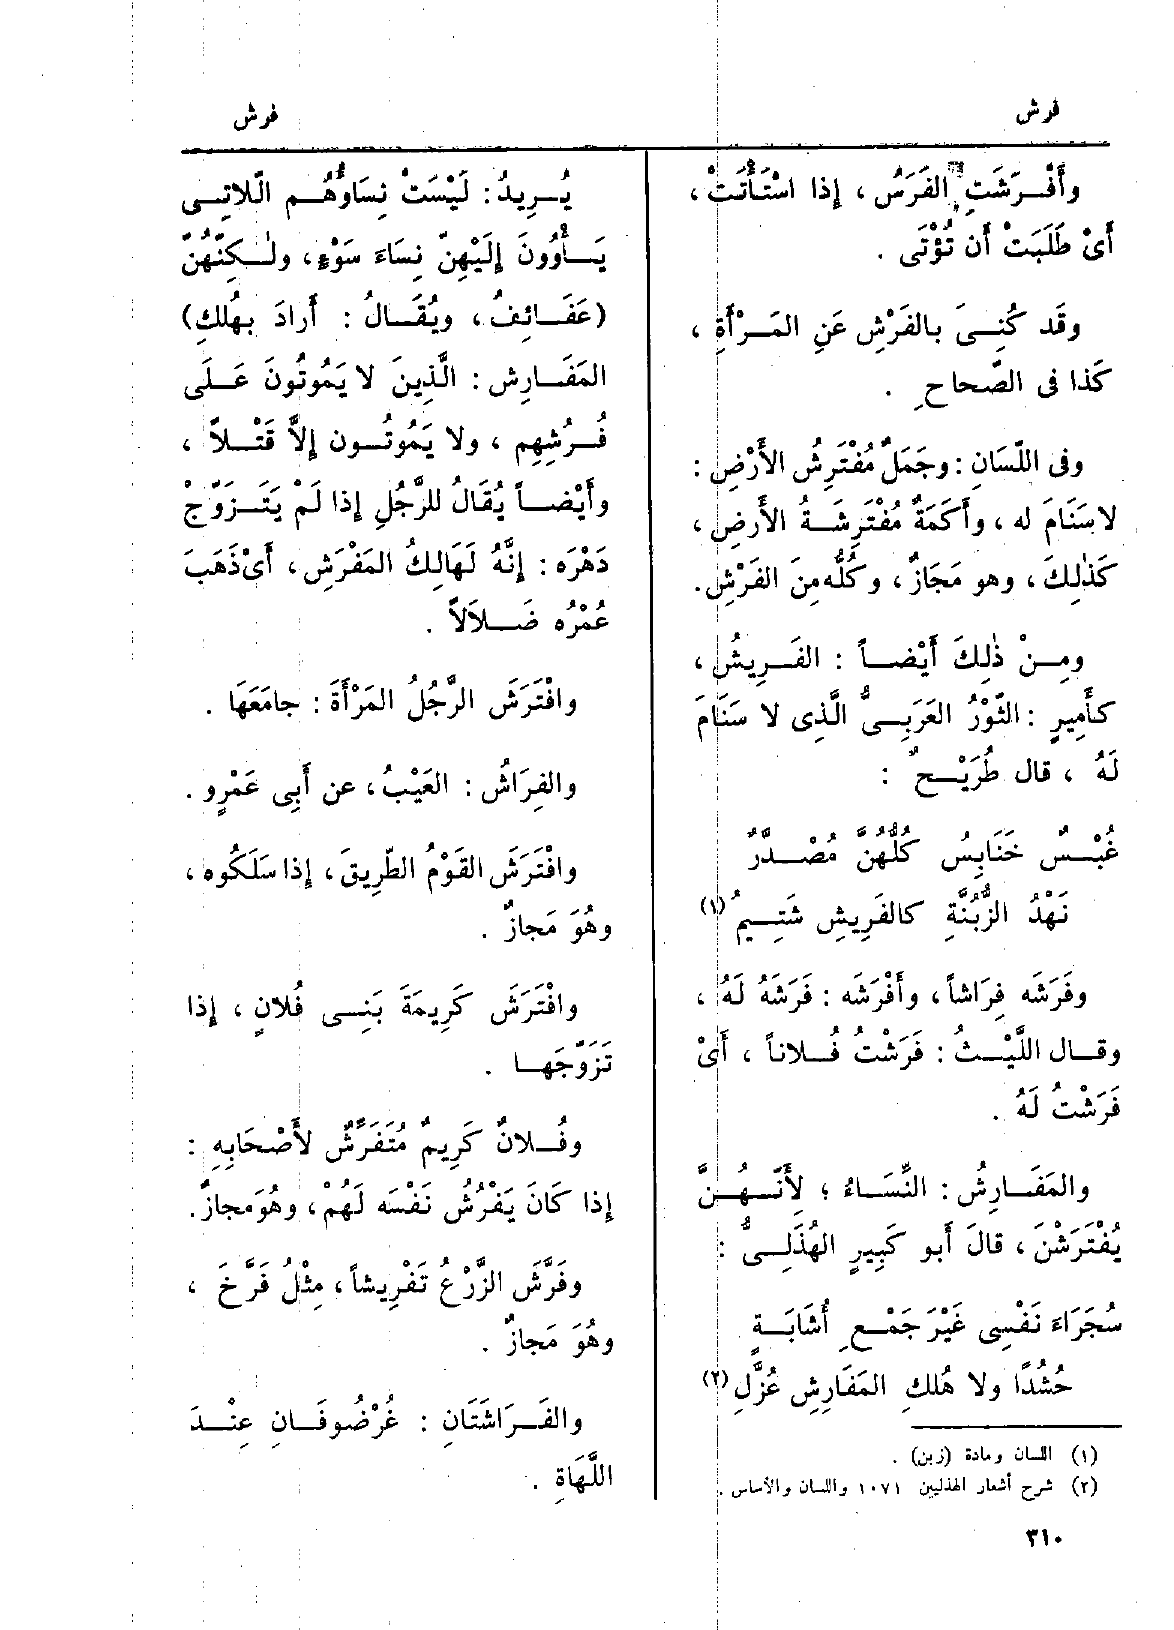 فرش
فرش
وأَفْرَشَتِ الفَرَسُ ، إِذا اسْتَأْتَتْ ،
أَىْ طَلَبَتْ أَن تُؤْتَى .
وقَد كُنِىَ بالفَرْشِ عَنِ المَرْأَةِ ،
كَذا فى الصّحاحِ .
وفى اللّسَانِ : وجَمَلٌ مُفْتَرِشُ الأَرْضِ :
لا سَنَامَ له ، وأَكَمَةٌ مُفْتَرِشَةُ الأَرضِ ،
كَذٰلِكَ ، وهو مَجَازٌ ، وكُلُّه مِنَ الفَرْشِ .
ومِنْ ذٰلِكَ أَيْضاً : الفَرِيشُ ،
كأَمِيرٍ : الثّوْرُ العَرَبِىُّ الَّذِى لا سَنَامَ
لَهُ ، قال طُرَيْحٌ :
غُبْسٌ خَنَابِسُ كُلُّهُنَّ مُصْدَّرٌ
نَهْدُ الزُّبُنَّةِ كالفَرِيشِ شَتِيمُ (١)
وفَرَشَه فِرَاشاً ، وأَفْرَشَه : فَرَشَهُ لَهُ ،
وقال اللَّيْثُ : فَرَشْتُ فُلاناً ، أَىْ
فَرَشْتُ لَهُ .
والمَفَارِشُ : النِّسَاءُ ؛ لأَنَّهُنَّ
يُفْتَرَشْنَ ، قالَ أَبو كَبِيرٍ الهُذَلِىُّ :
سُجَرَاءَ نَفْسِى غَيْرَ جَمْعِ أُشَابَةٍ
حُشُدًا ولا هُلكِ المَفَارِشِ عُزَّلِ (٢)
(١) اللسان ومادة (زبن) .
(٢) شرح أشعار الهذليين ١٠٧١ واللسان والأساس .
يُرِيدُ : لَيْسَتْ نِسَاوُهُم الّلاتِى
يَأْوُونَ إِلَيْهِنّ نِسَاءَ سَوْءٍ ، ولٰكِنَّهُنّ
(عَفَائِفُ ، ويُقَالُ : أَرادَ بهُلكِ)
المَفَارِش : الَّذِينَ لا يَمُوتُونَ عَلَى
فُرُشِهِم ، ولا يَمُوتُون إِلاَّ قَتْلاً ،
وأَيْضاً يُقَالُ للرَّجُلِ إِذا لَمْ يَتَزَوَّجْ
دَهْرَه : إِنَّهُ لَهَالِكُ المَفْرَشِ ، أَىْ ذَهَبَ
عُمْرُه ضَلاَلاً .
وافْتَرَشَ الرَّجُلُ المَرْأَةَ : جامَعَهَا .
والفِرَاشُ : العَيْبُ ، عن أَبِى عَمْرٍو .
وافْتَرَشَ القَوْمُ الطّرِيقَ ، إِذا سَلَكُوه ،
وهُوَ مَجازٌ .
وافْتَرَشَ كَرِيمَةَ بَنِى فُلانٍ ، إِذا
تَزَوَّجَها .
وفُلانٌ كَرِيمٌ مُتَفَرِّشٌ لأَصْحَابِهِ :
إِذا كَانَ يَفْرُشُ نَفْسَه لَهُمْ ، وهُوَ مَجازٌ .
وفَرَّشَ الزَّرْعُ تَفْرِيشاً ، مِثْلُ فَرَّخَ ،
وهُوَ مَجازٌ .
والفَرَاشَتَانِ : غُرْضُوفَانِ عِنْدَ
اللَّهَاةِ .
٣١٠